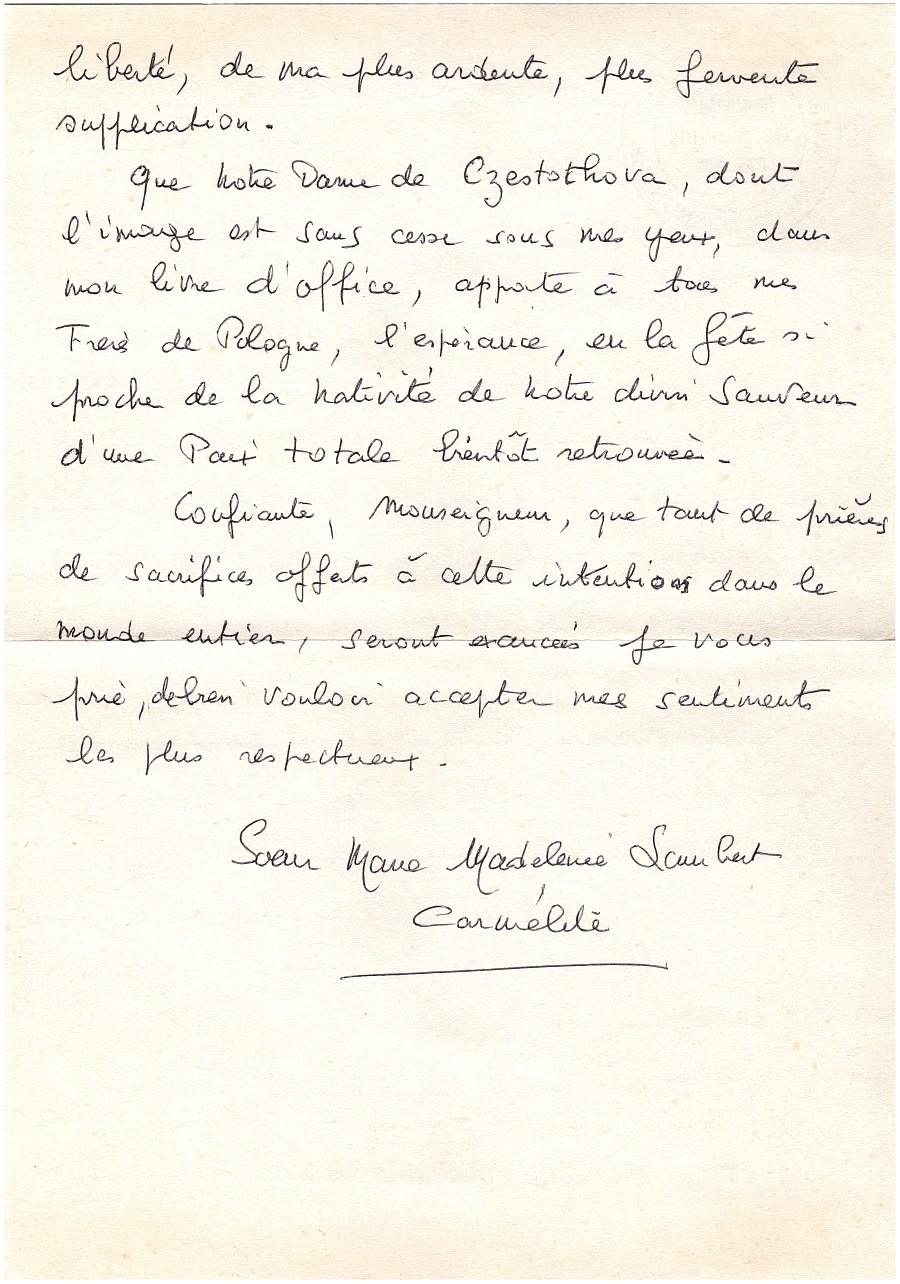 liberté, de ma plus ardente, plus fervente
supplication.
Que Notre Dame de Czestothova, dont
l'image est sans cesse sous mes yeux, dans
mon livre d'office, apporte à tous mes
Frères de Pologne, l'espérance, en la fête si
proche de la Nativité de Notre divin Sauveur
d'une Paix totale bientôt retrouvée.
Confiante, Monseigneur, que tant de prières
de sacrifices offerts à cette intention dans le
monde entier, seront exaucés je vous
prie, de bien vouloir accepter mes sentiments
les plus respectueux.
Soeur Marie Madeleine Lambert
Carmélite